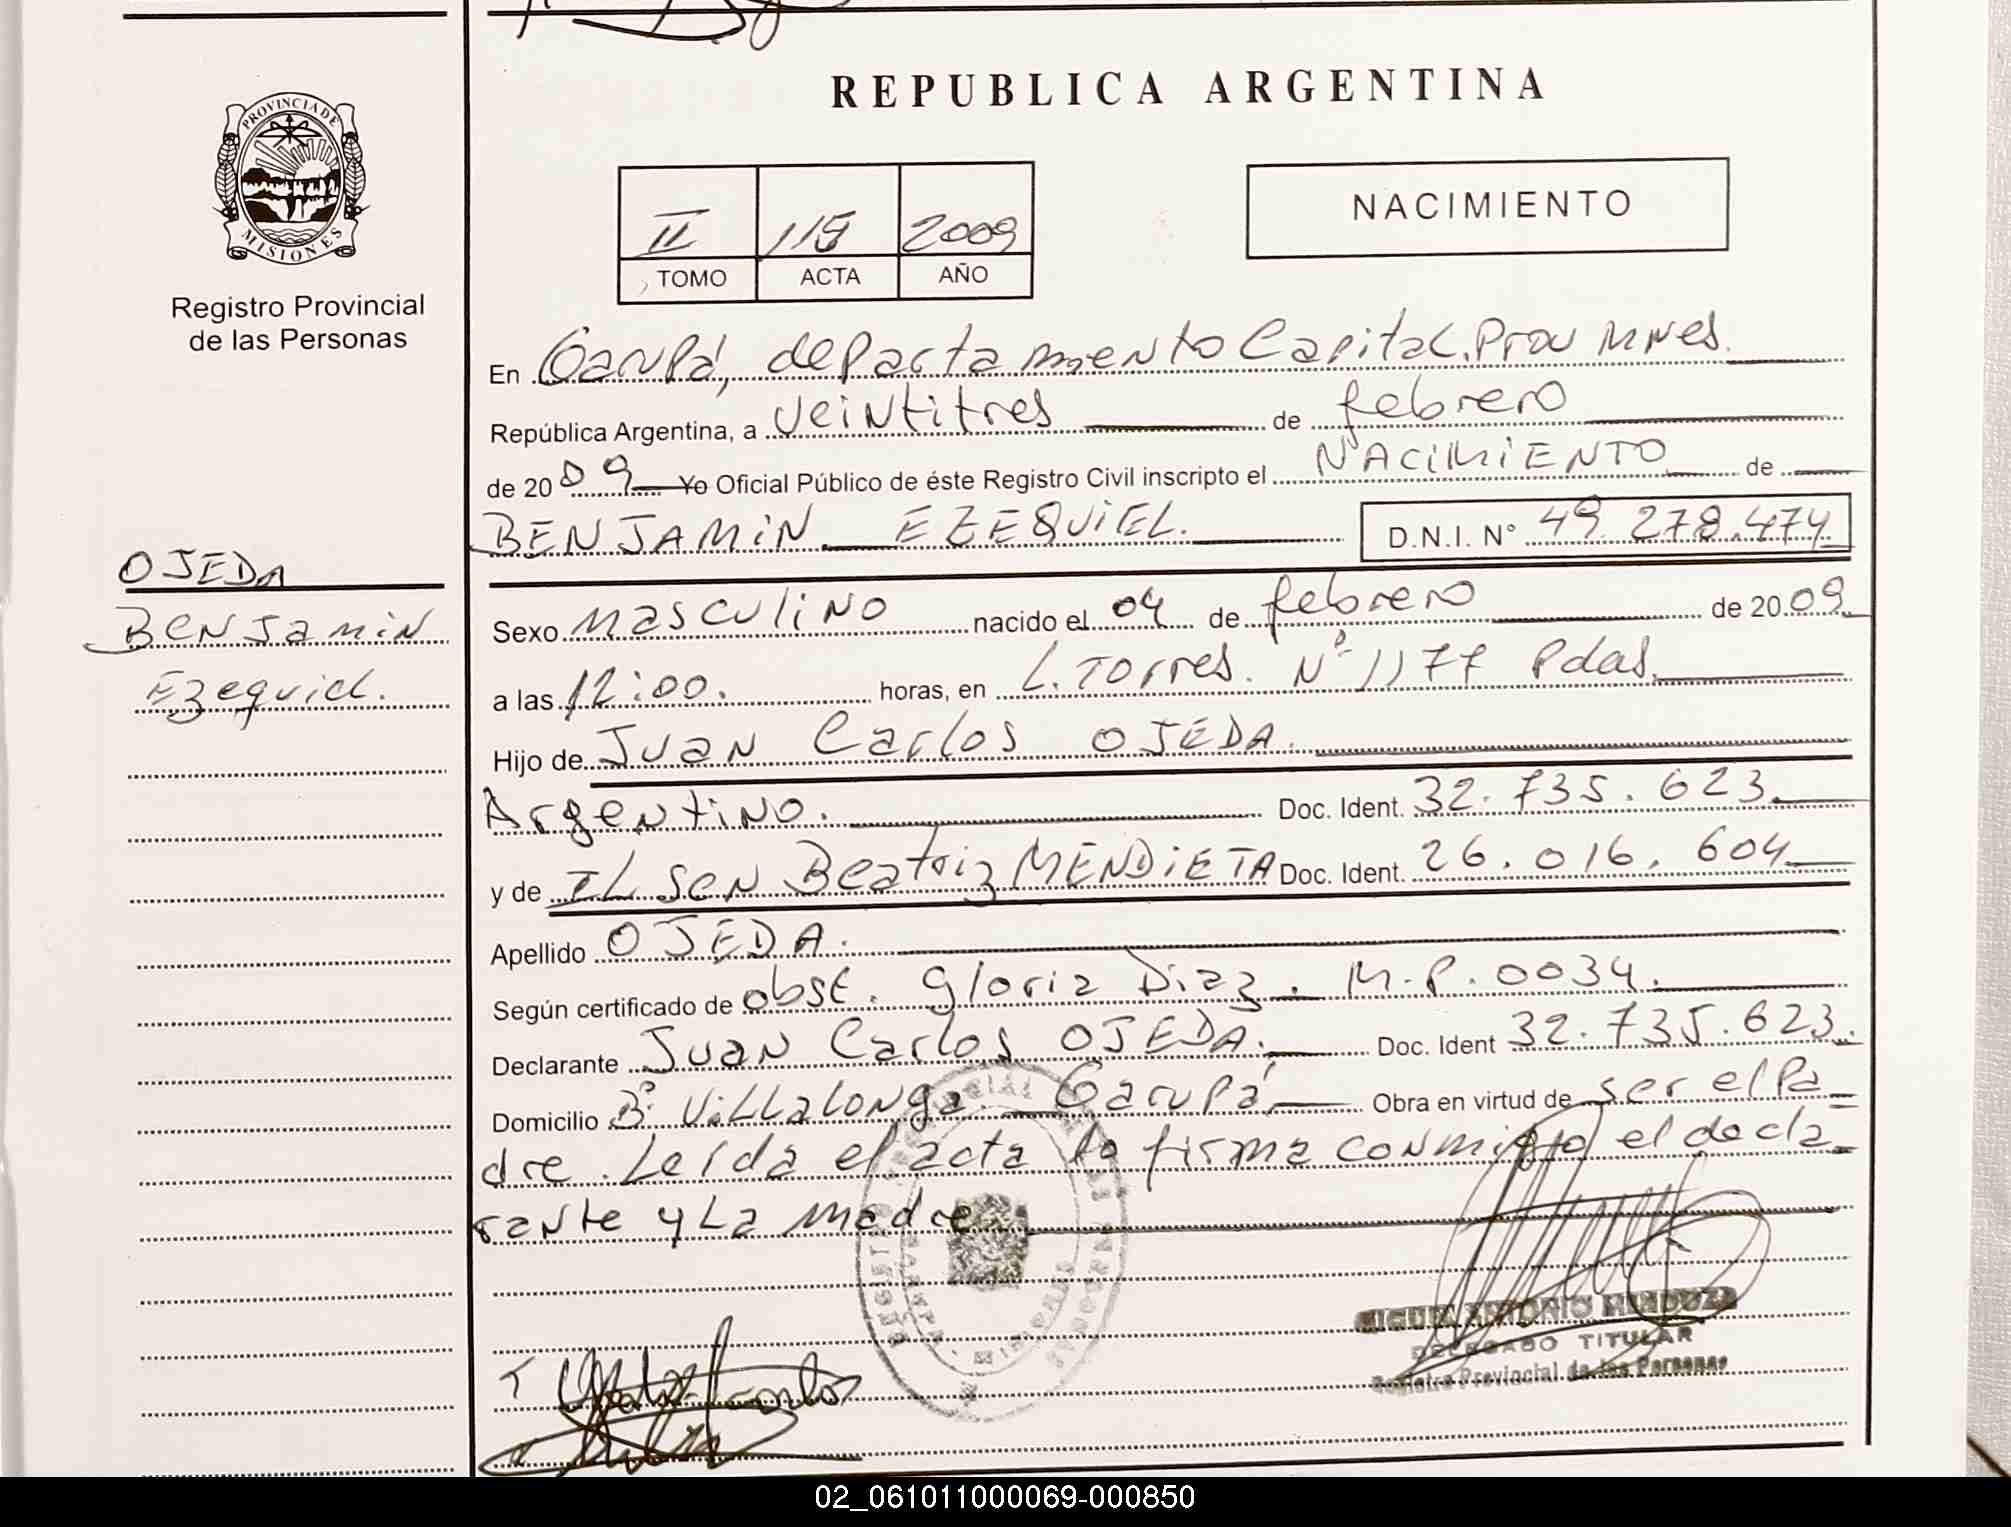 PROVINCIA DE
MISIONES
Registro Provincial
de las Personas
OJEDA
Benjamin
Ezequiel.
REPUBLICA ARGENTINA
II 115 2009
TOMO ACTA AÑO
NACIMIENTO
En Garupá, departamento Capital. Prov Mnes.
República Argentina, a veintitres de febrero
de 2009 Yo Oficial Público de éste Registro Civil inscripto el NACIMIENTO de
BENJAMIN EZEQUIEL. D.N.I. N° 49.278.474
Sexo masculino nacido el 04 de febrero de 2009.
a las 12:00. horas, en L. Torres. Nº 1177 Pdas.
Hijo de Juan Carlos OJEDA.
Argentino. Doc. Ident. 32.735.623.
y de ILSEN Beatriz MENDIETA Doc. Ident. 26.016.604
Apellido OJEDA.
Según certificado de obst. Gloria Diaz. M.P. 0034.
Declarante Juan Carlos OJEDA. Doc. Ident 32.735.623.
Domicilio Bº Villalonga. Garupá Obra en virtud de ser el Pa=
dre. Leída el acta la firma conmigo el decla=
rante y La madre
MIGUEL ANTONIO MENDOZA
DELEGADO TITULAR
Registro Provincial de las Personas
02_061011000069-000850